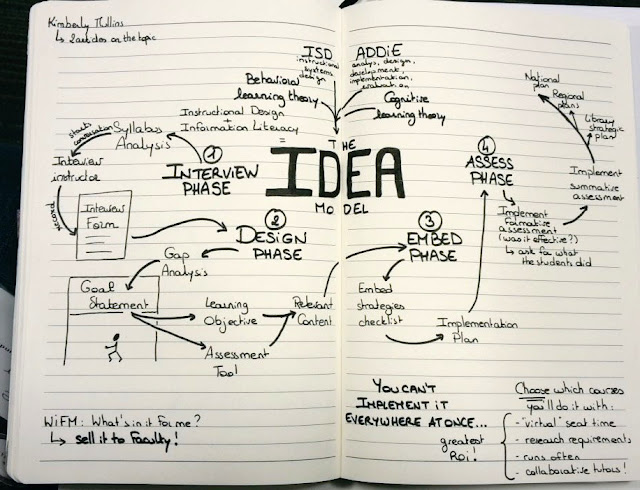 Kimberly Mullins
↳ 2 articles on the topic
ISD
instructional
systems
design
ADDiE
analysis, design,
development,
implementation,
evaluation
Behavioral
learning theory
Cognitive
learning theory
Instructional Design
+
Information Literacy
=
THE
IDEA
MODEL
1
INTERVIEW
PHASE
Syllabs
Analysis
starts
conversation
Interview
instructor
record
Interview
Form
2
DESIGN
PHASE
Gap
Analysis
Goal
Statement
Learning
Objective
Assessment
Tool
Relevant
Content
3
EMBED
PHASE
Embed
strategies
checklist
Implementation
Plan
4
ASSESS
PHASE
Implement
formative
assessment
(was it effective?)
↳ ask for what
the students did
Implement
summative
assessment
National
plan
Regional
plans
Library
strategic
plan
WiFM: What's in it for me?
↳ sell it to Faculty!
YOU CAN'T
IMPLEMENT iT
EVERYWHERE AT ONCE...
greatest
ROi!
Choose which courses
you'll do it with:
- "virtual" seat time
- research requirements
- runs often
- collaborative tutors!